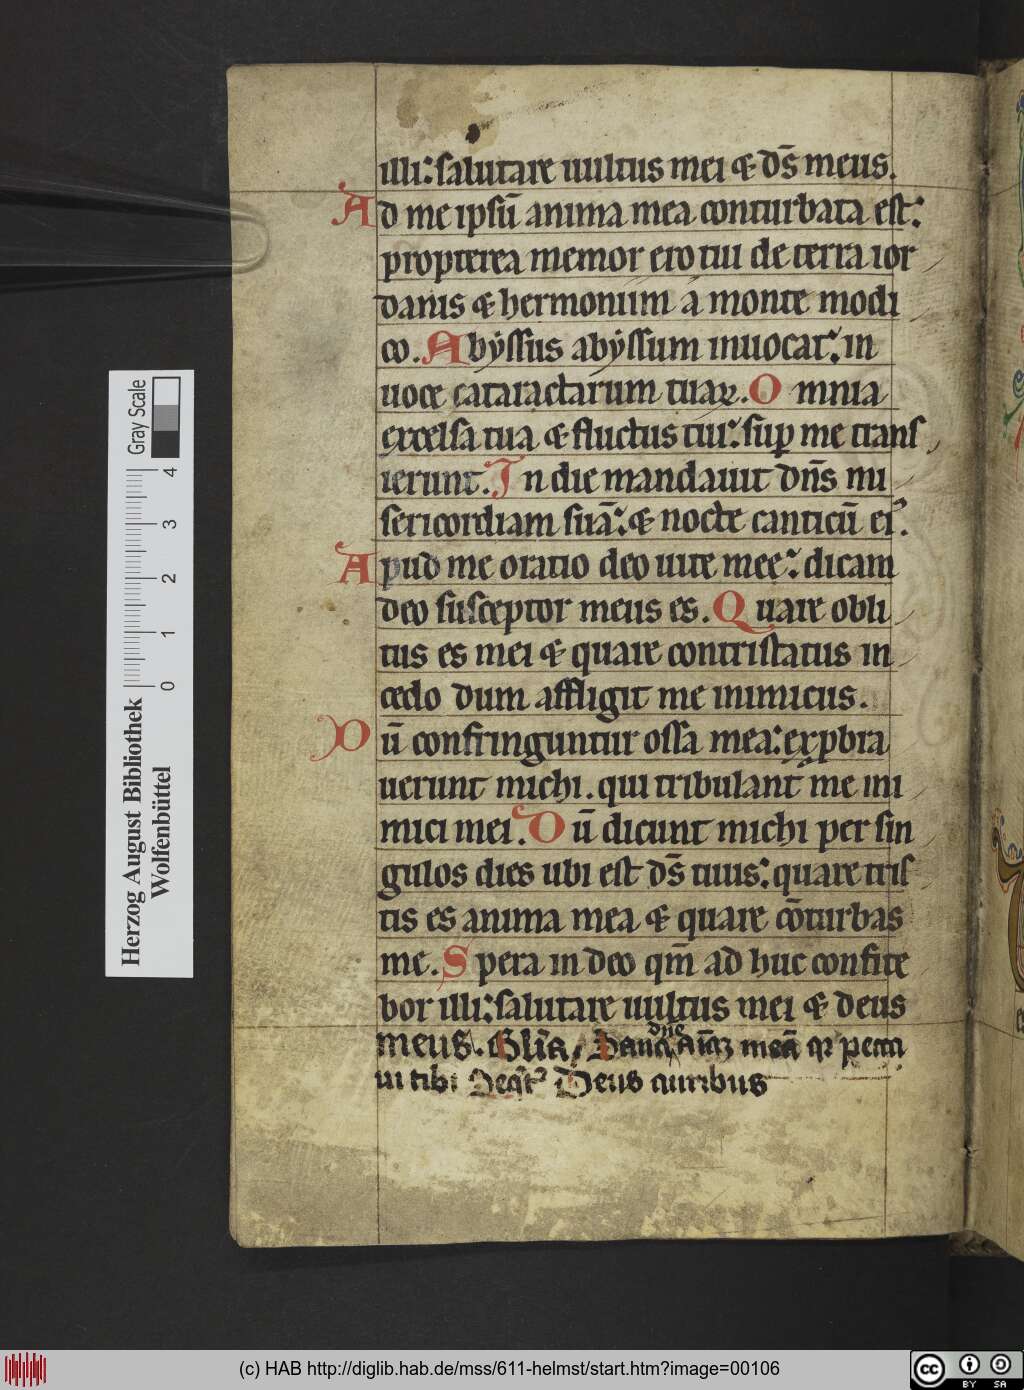 illi: salutare uultus mei & ds̄ meus.
Ad me ipsū anima mea conturbata est:
propterea memor ero tui de terra ior
danis & hermoniim a monte modi
co. Abyssus abyssum inuocat: in
uoce cataractarum tuaꝝ. Omnia
excelsa tua & fluctus tui: suꝑ me trans
ierunt. In die mandauit dn̄s mi
sericordiam suā: & nocte canticū ei?.
Apud me oratio deo uite meę: dicam
deo susceptor meus es. Quare obli
tus es mei & quare contristatus in
cedo dum affligit me inimicus.
Dū confringuntur ossa mea: exꝓbra
uerunt michi. qui tribulant me ini
mici mei. Dū dicunt michi per sin
gulos dies ubi est ds̄ tuus: quare tris
tis es anima mea & quare cōturbas
me. Spera in deo qm̄ ad huc confite
bor illi: salutare uultus mei & deus
meus. Gl̄ia, Sana dn̄e aīaꝫ meā qr pecca
ui tibi Deus auribus
Gray Scale
0 1 2 3 4
Herzog August Bibliothek
Wolfenbüttel
(c) HAB http://diglib.hab.de/mss/611-helmst/start.htm?image=00106
cc BY SA